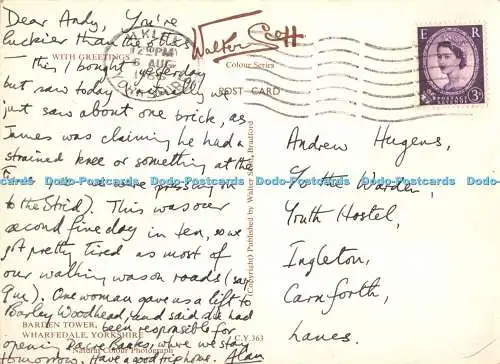 Dear Andy, You're
luckier than the others
WITH GREETINGS
— this I bought yesterday
but saw today virtually
just saw about one brick, as
James was claiming he had a
strained knee or something at the
pressed on
to the Strid). This was our
second fine day in ten, so we
got pretty tired as most of
our walking was on roads (say
9m). One woman gave us a lift to
Barley Woodhead, and said she had
BARDEN TOWER,
been responsible for
WHARFEDALE, YORKSHIRE
C.Y.363
opening Dacre Banks, where we stay
Natural Colour Photograph
tomorrow. Have a good trip home. Alan
ILKLEY
12 PM
6 AUG
YORKSHIRE
Walter Scott
Colour Series
POST CARD
(Copyright) Published by Walter Scott, Bradford
E R
POSTAGE REVENUE
3D
Andrew Hugens,
Youth Warden,
Youth Hostel,
Ingleton,
Carnforth,
Lancs.
Dodo-Postcards Dodo-Postcards Dodo-Postcards Dodo-Postcards Dodo-Postcards Dodo-Postcards